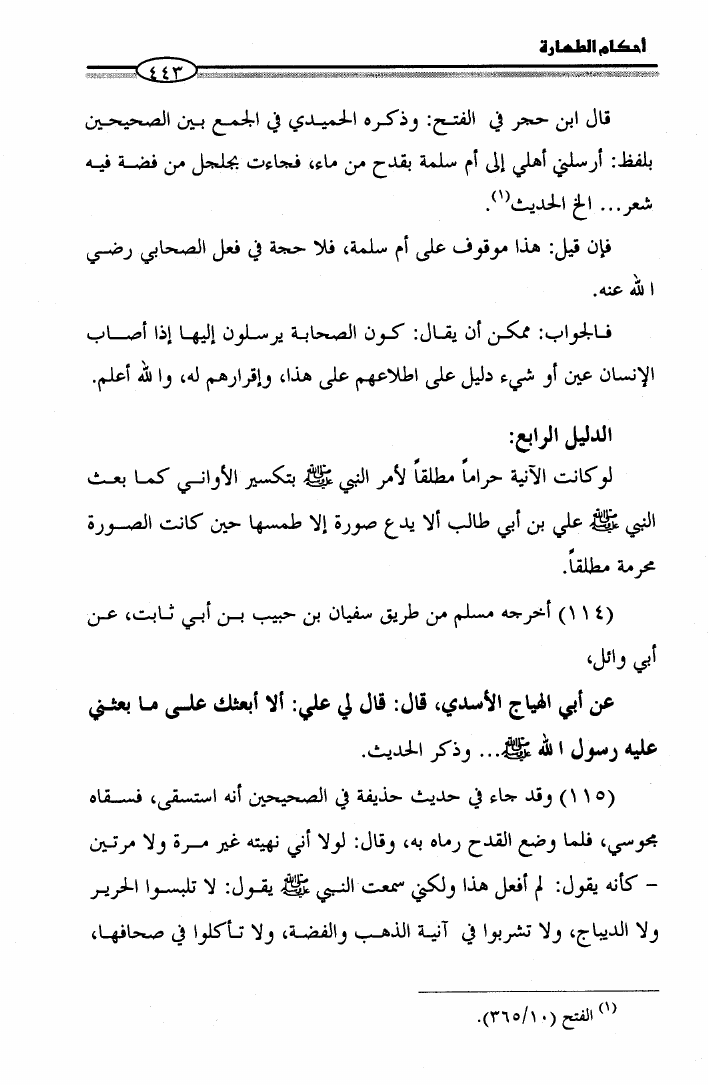 أحكام الطهارة
٤٤٣
قال ابن حجر في الفتح: وذكره الحميدي في الجمع بين الصحيحين
بلفظ: أرسلني أهلي إلى أم سلمة بقدح من ماء، فجاءت بجلجل من فضة فيه
شعر... الخ الحديث(١).
فإن قيل: هذا موقوف على أم سلمة، فلا حجة في فعل الصحابي رضي
الله عنه.
فالجواب: ممكن أن يقال: كون الصحابة يرسلون إليها إذا أصاب
الإنسان عين أو شيء دليل على اطلاعهم على هذا، وإقرارهم له، والله أعلم.
الدليل الرابع:
لو كانت الآنية حراماً مطلقاً لأمر النبي ﷺ بتكسير الأواني كما بعث
النبي ﷺ علي بن أبي طالب ألا يدع صورة إلا طمسها حين كانت الصورة
محرمة مطلقاً.
(١١٤) أخرجه مسلم من طريق سفيان بن حبيب بن أبي ثابت، عن
أبي وائل،
عن أبي الهياج الأسدي، قال: قال لي علي: ألا أبعثك على ما بعثني
عليه رسول الله ﷺ... وذكر الحديث.
(١١٥) وقد جاء في حديث حذيفة في الصحيحين أنه استسقى، فسقاه
مجوسي، فلما وضع القدح رماه به، وقال: لولا أني نهيته غير مرة ولا مرتين
– كأنه يقول: لم أفعل هذا ولكني سمعت النبي ﷺ يقول: لا تلبسوا الحرير
ولا الديباج، ولا تشربوا في آنية الذهب والفضة، ولا تأكلوا في صحافها،
(١) الفتح (٣٦٥/١٠).